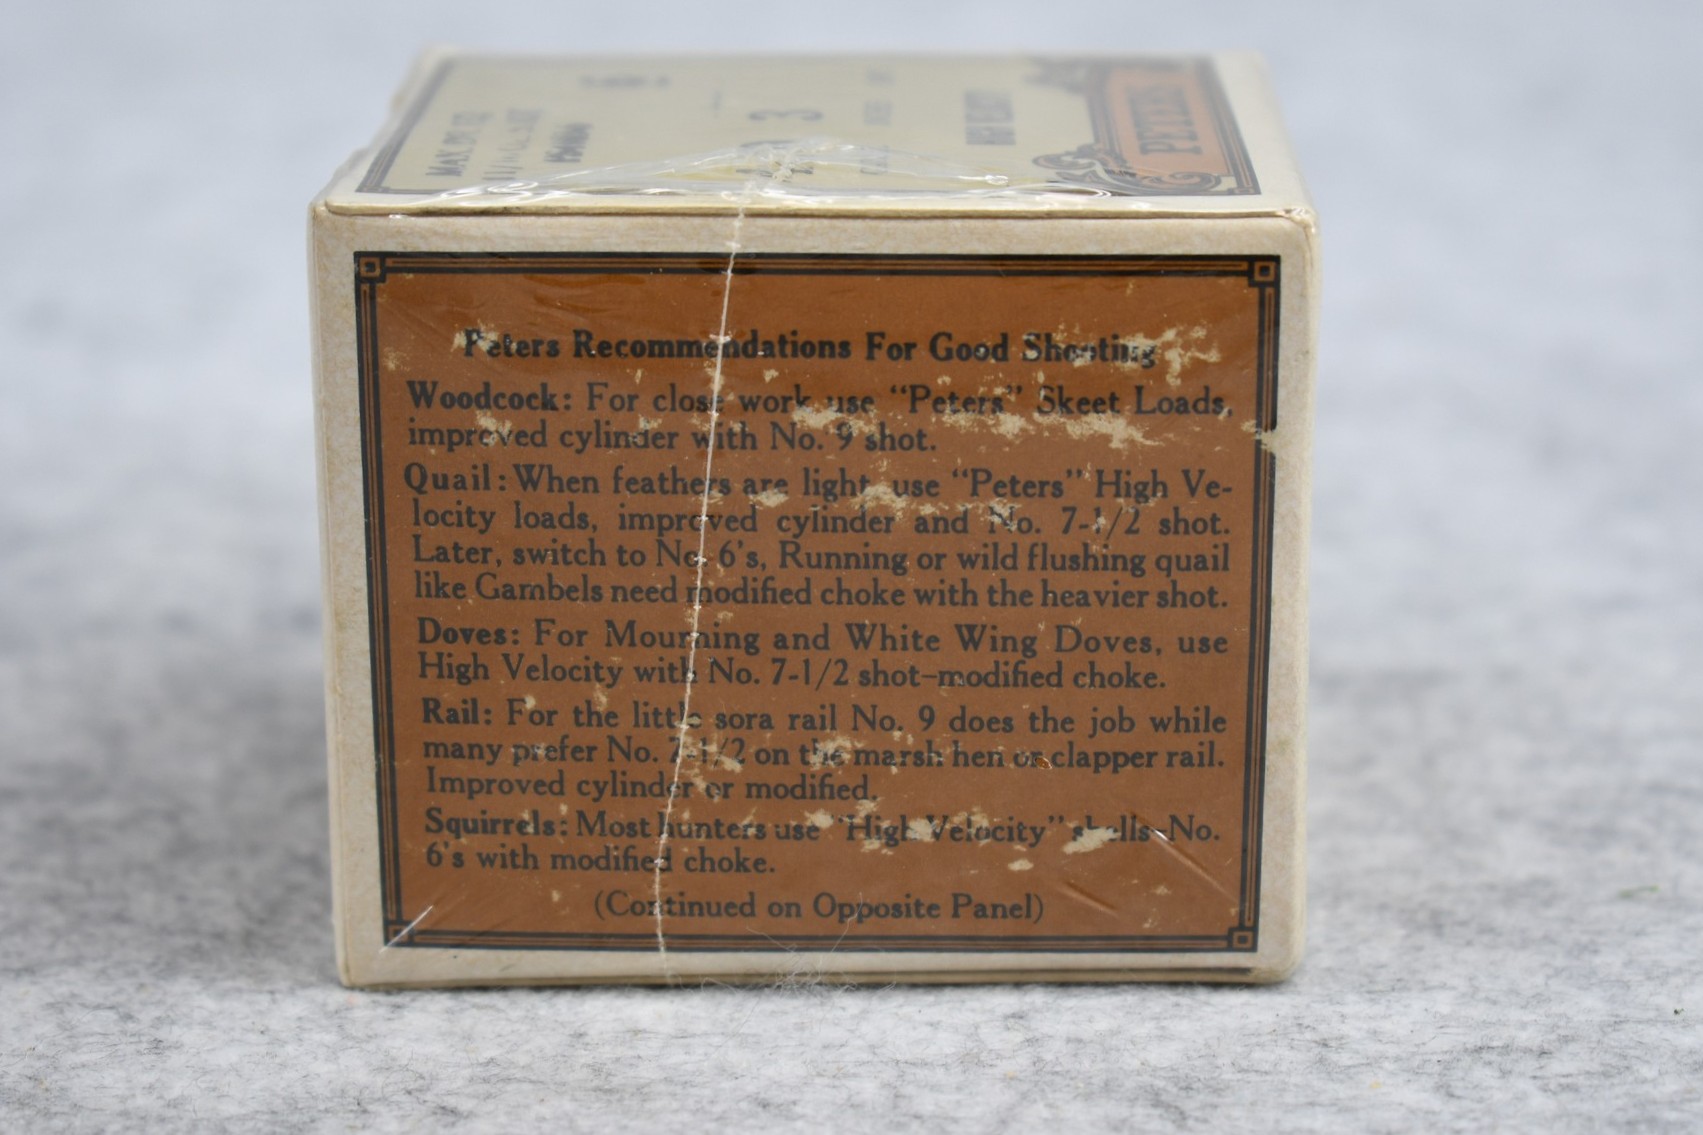 PETERS
HIGH VELOCITY
3
MAX. DR. EQ.
Peters Recommendations For Good Shooting
Woodcock: For close work use "Peters" Skeet Loads,
improved cylinder with No. 9 shot.
Quail: When feathers are light use "Peters" High Ve-
locity loads, improved cylinder and No. 7-1/2 shot.
Later, switch to No. 6's, Running or wild flushing quail
like Gambels need modified choke with the heavier shot.
Doves: For Mourning and White Wing Doves, use
High Velocity with No. 7-1/2 shot–modified choke.
Rail: For the little sora rail No. 9 does the job while
many prefer No. 7-1/2 on the marsh hen or clapper rail.
Improved cylinder or modified.
Squirrels: Most hunters use "High Velocity" shells–No.
6's with modified choke.
(Continued on Opposite Panel)